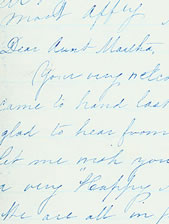 most appy
Dear Aunt Martha,
Your very welco
came to hand last
glad to hear from
let me wish you
a very "Happy
We are all in